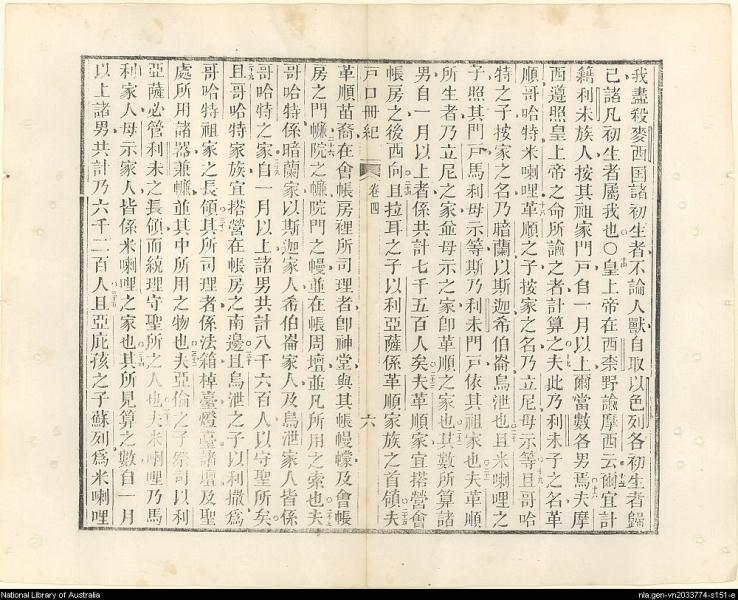 我盡殺麥西国諸初生者不論人獸自取以色列各初生者歸
己諸凡初生者屬我也〇皇上帝在西柰野諭摩西云爾宜計
籍利未族人按其祖家門戶自一月以上爾當數各男焉夫摩
西遵照皇上帝之命所諭之者計算之夫此乃利未子之名革
順哥哈特米喇哩革順之子按家之名乃立尼母示等且哥哈
特之子按家之名乃暗蘭以斯迦希伯崙烏泄也且米喇哩之
子照其門戶馬利母示等斯乃利未門戶依其祖家也夫革順
所生者乃立尼之家並母示之家卽革順之家也其數所算諸
男自一月以上者係共計七千五百人矣夫革順家宜搭營會
帳房之後西向且拉耳之子以利亞薩係革順家族之首領夫
戶口冊紀 卷四 六
革順苗裔在會帳房裡所司理者卽神堂與其帳幔幪及會帳
房之門簾院之簾院門之幔並在帳周壇並凡所用之索也夫
哥哈特係暗蘭家以斯迦家人希伯崙家人及烏泄家人皆係
哥哈特之家自一月以上諸男共計八千六百人以守聖所矣
且哥哈特家族宜搭營在帳房之南邊且烏泄之子以利撒為
哥哈特祖家之長領其所司理者係法箱棹臺燈臺諸壇及聖
處所用諸器兼簾並其中所用之物也夫亞倫之子祭司以利
亞薩必管利未之長領而統理守聖所之人也夫米喇哩乃馬
利家人母示家人皆係米喇哩之家也其所見算之數自一月
以上諸男共計乃六千二百人且亞庇孩之子蘇列為米喇哩
National Library of Australia
nla.gen-vn2033774-s151-e